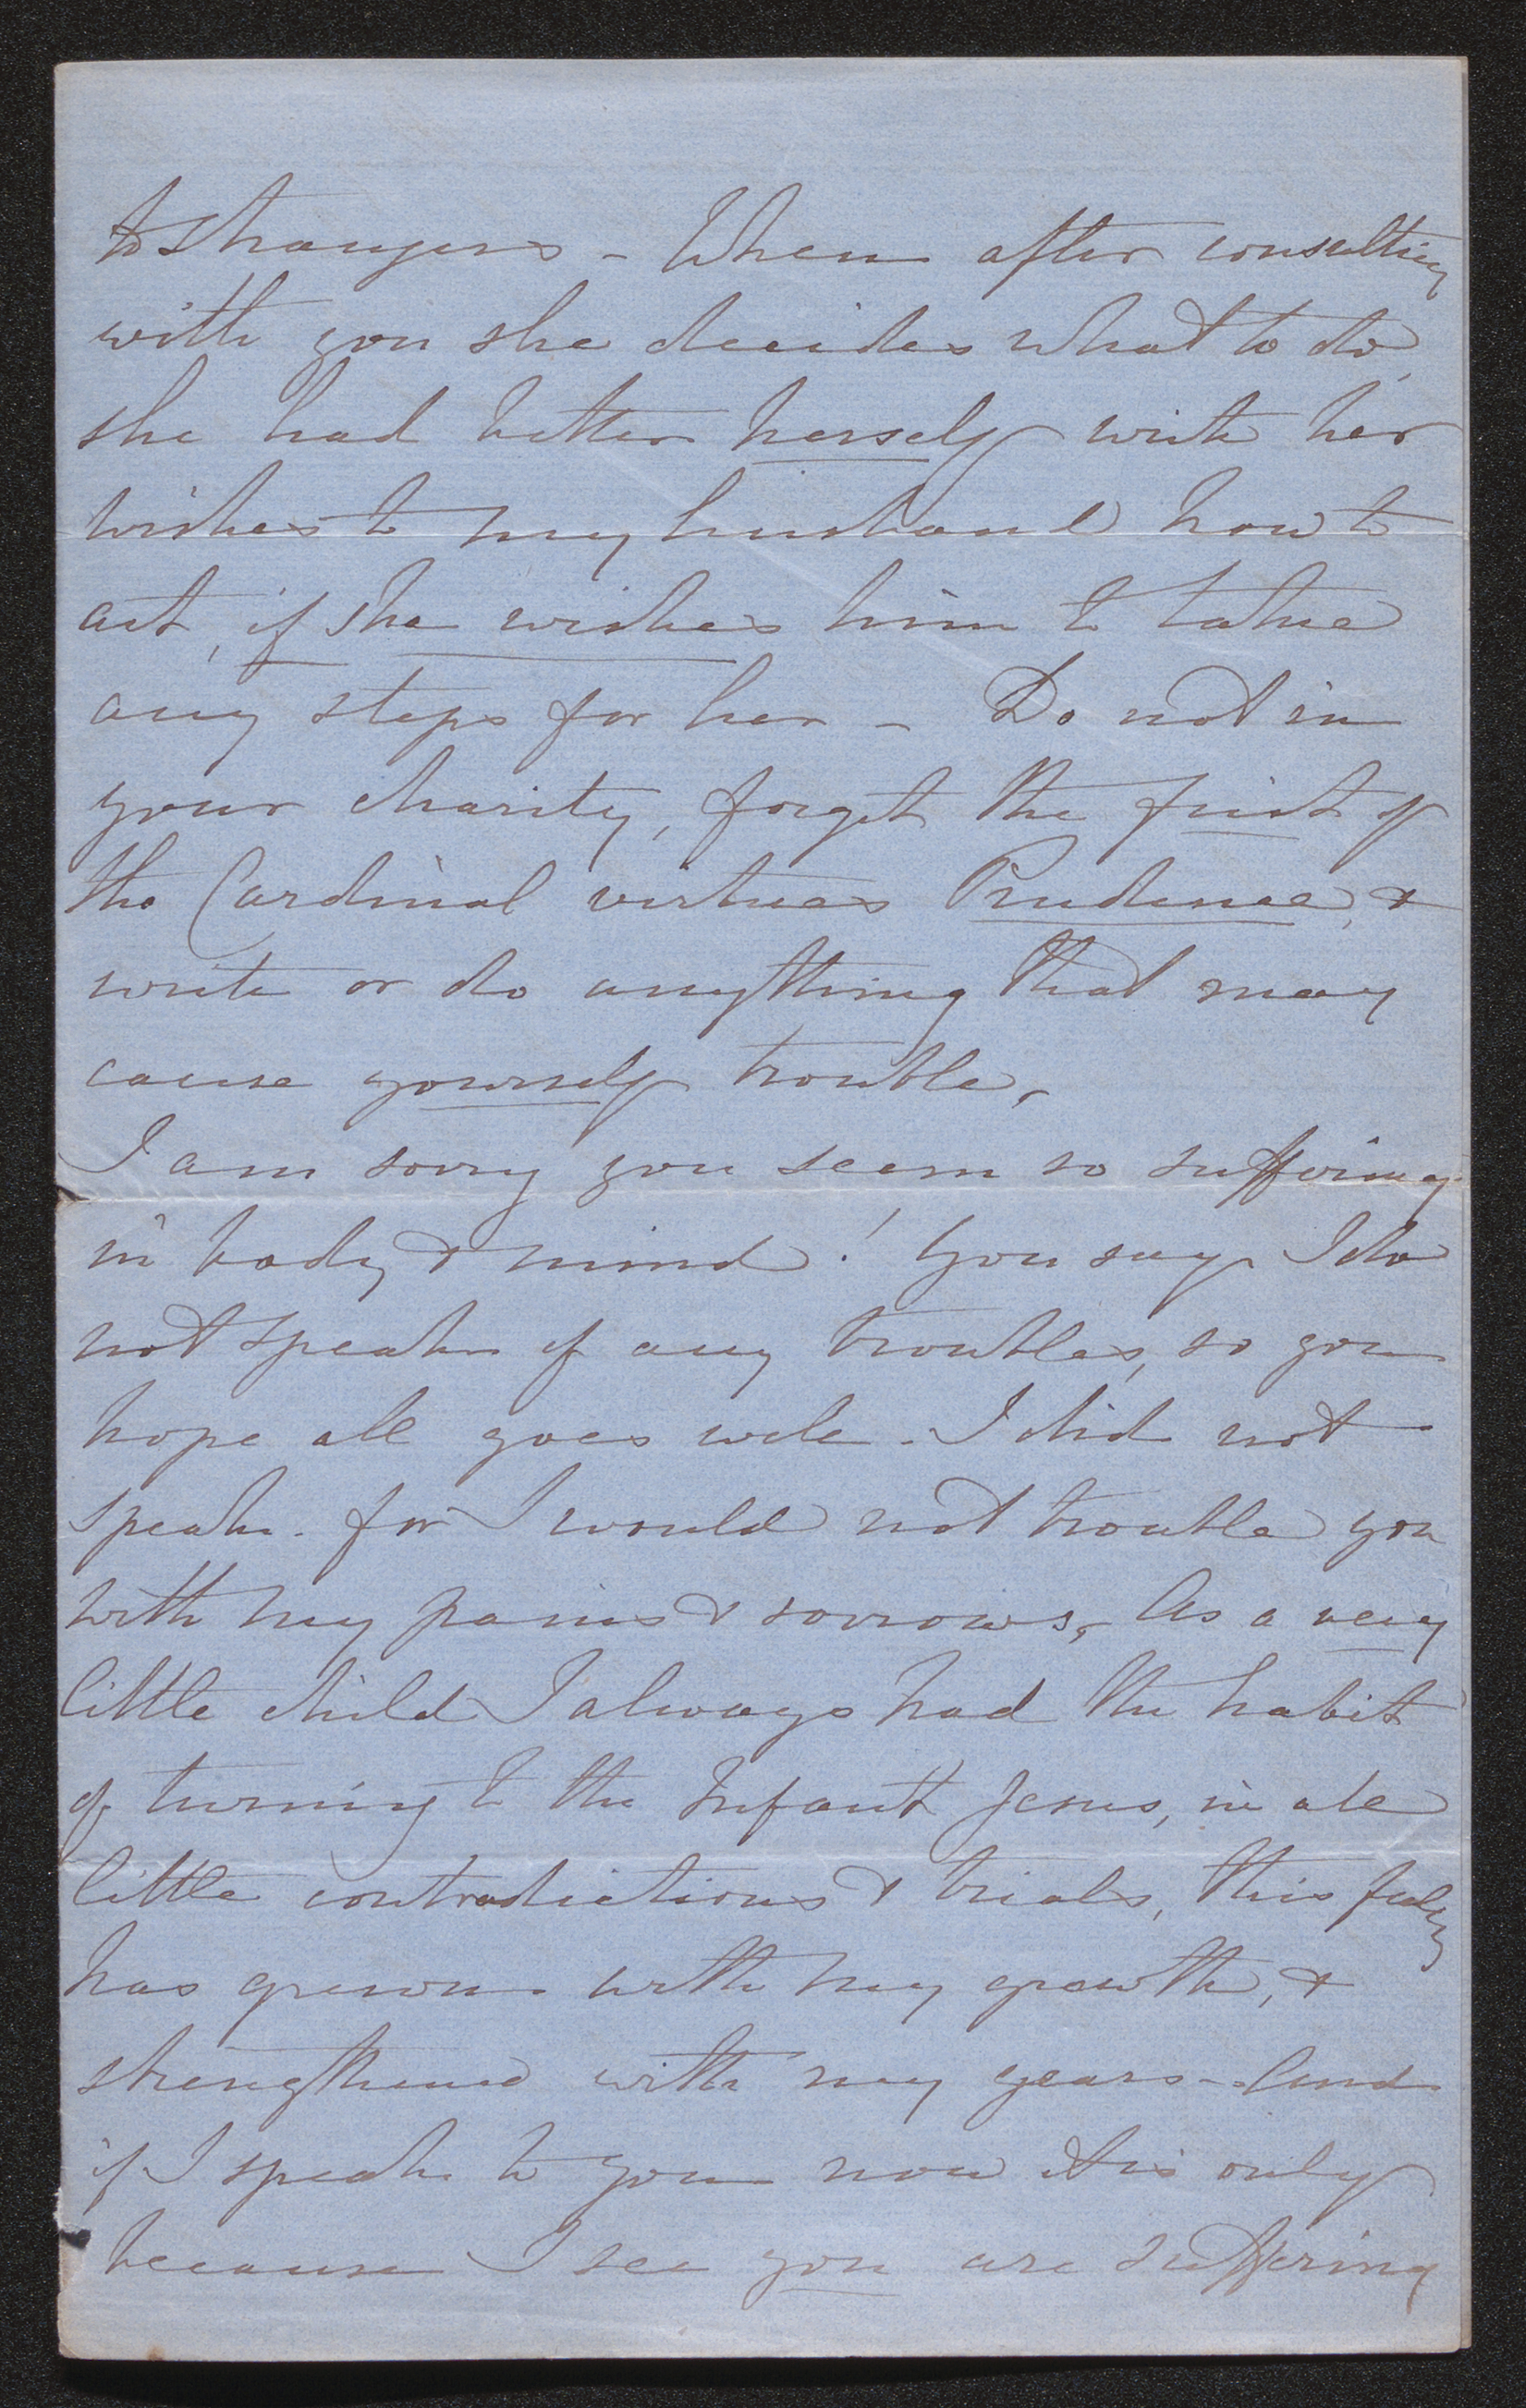 to strangers - When after consulting
with you she decides what to do,
she had better herself write her
wishes to my husband how to
act, if she wishes him to take
any steps for her - Do not in
your charity, forget the first of
the Cardinal virtues Prudence, &
write or do anything that may
cause yourself trouble,
I am sorry you seem so suffering
in body & mind! You say I do
not speak of any troubles, so you
hope all goes well - I did not
speak - for I would not trouble you
with my pains & sorrows, As a very
little child I always had the habit
of turning to the Infant Jesus, in all
little contradictions & trials, this feeling
has grown with my growth, &
strengthened with my years - And
if I speak to you now it is only
because I see you are suffering